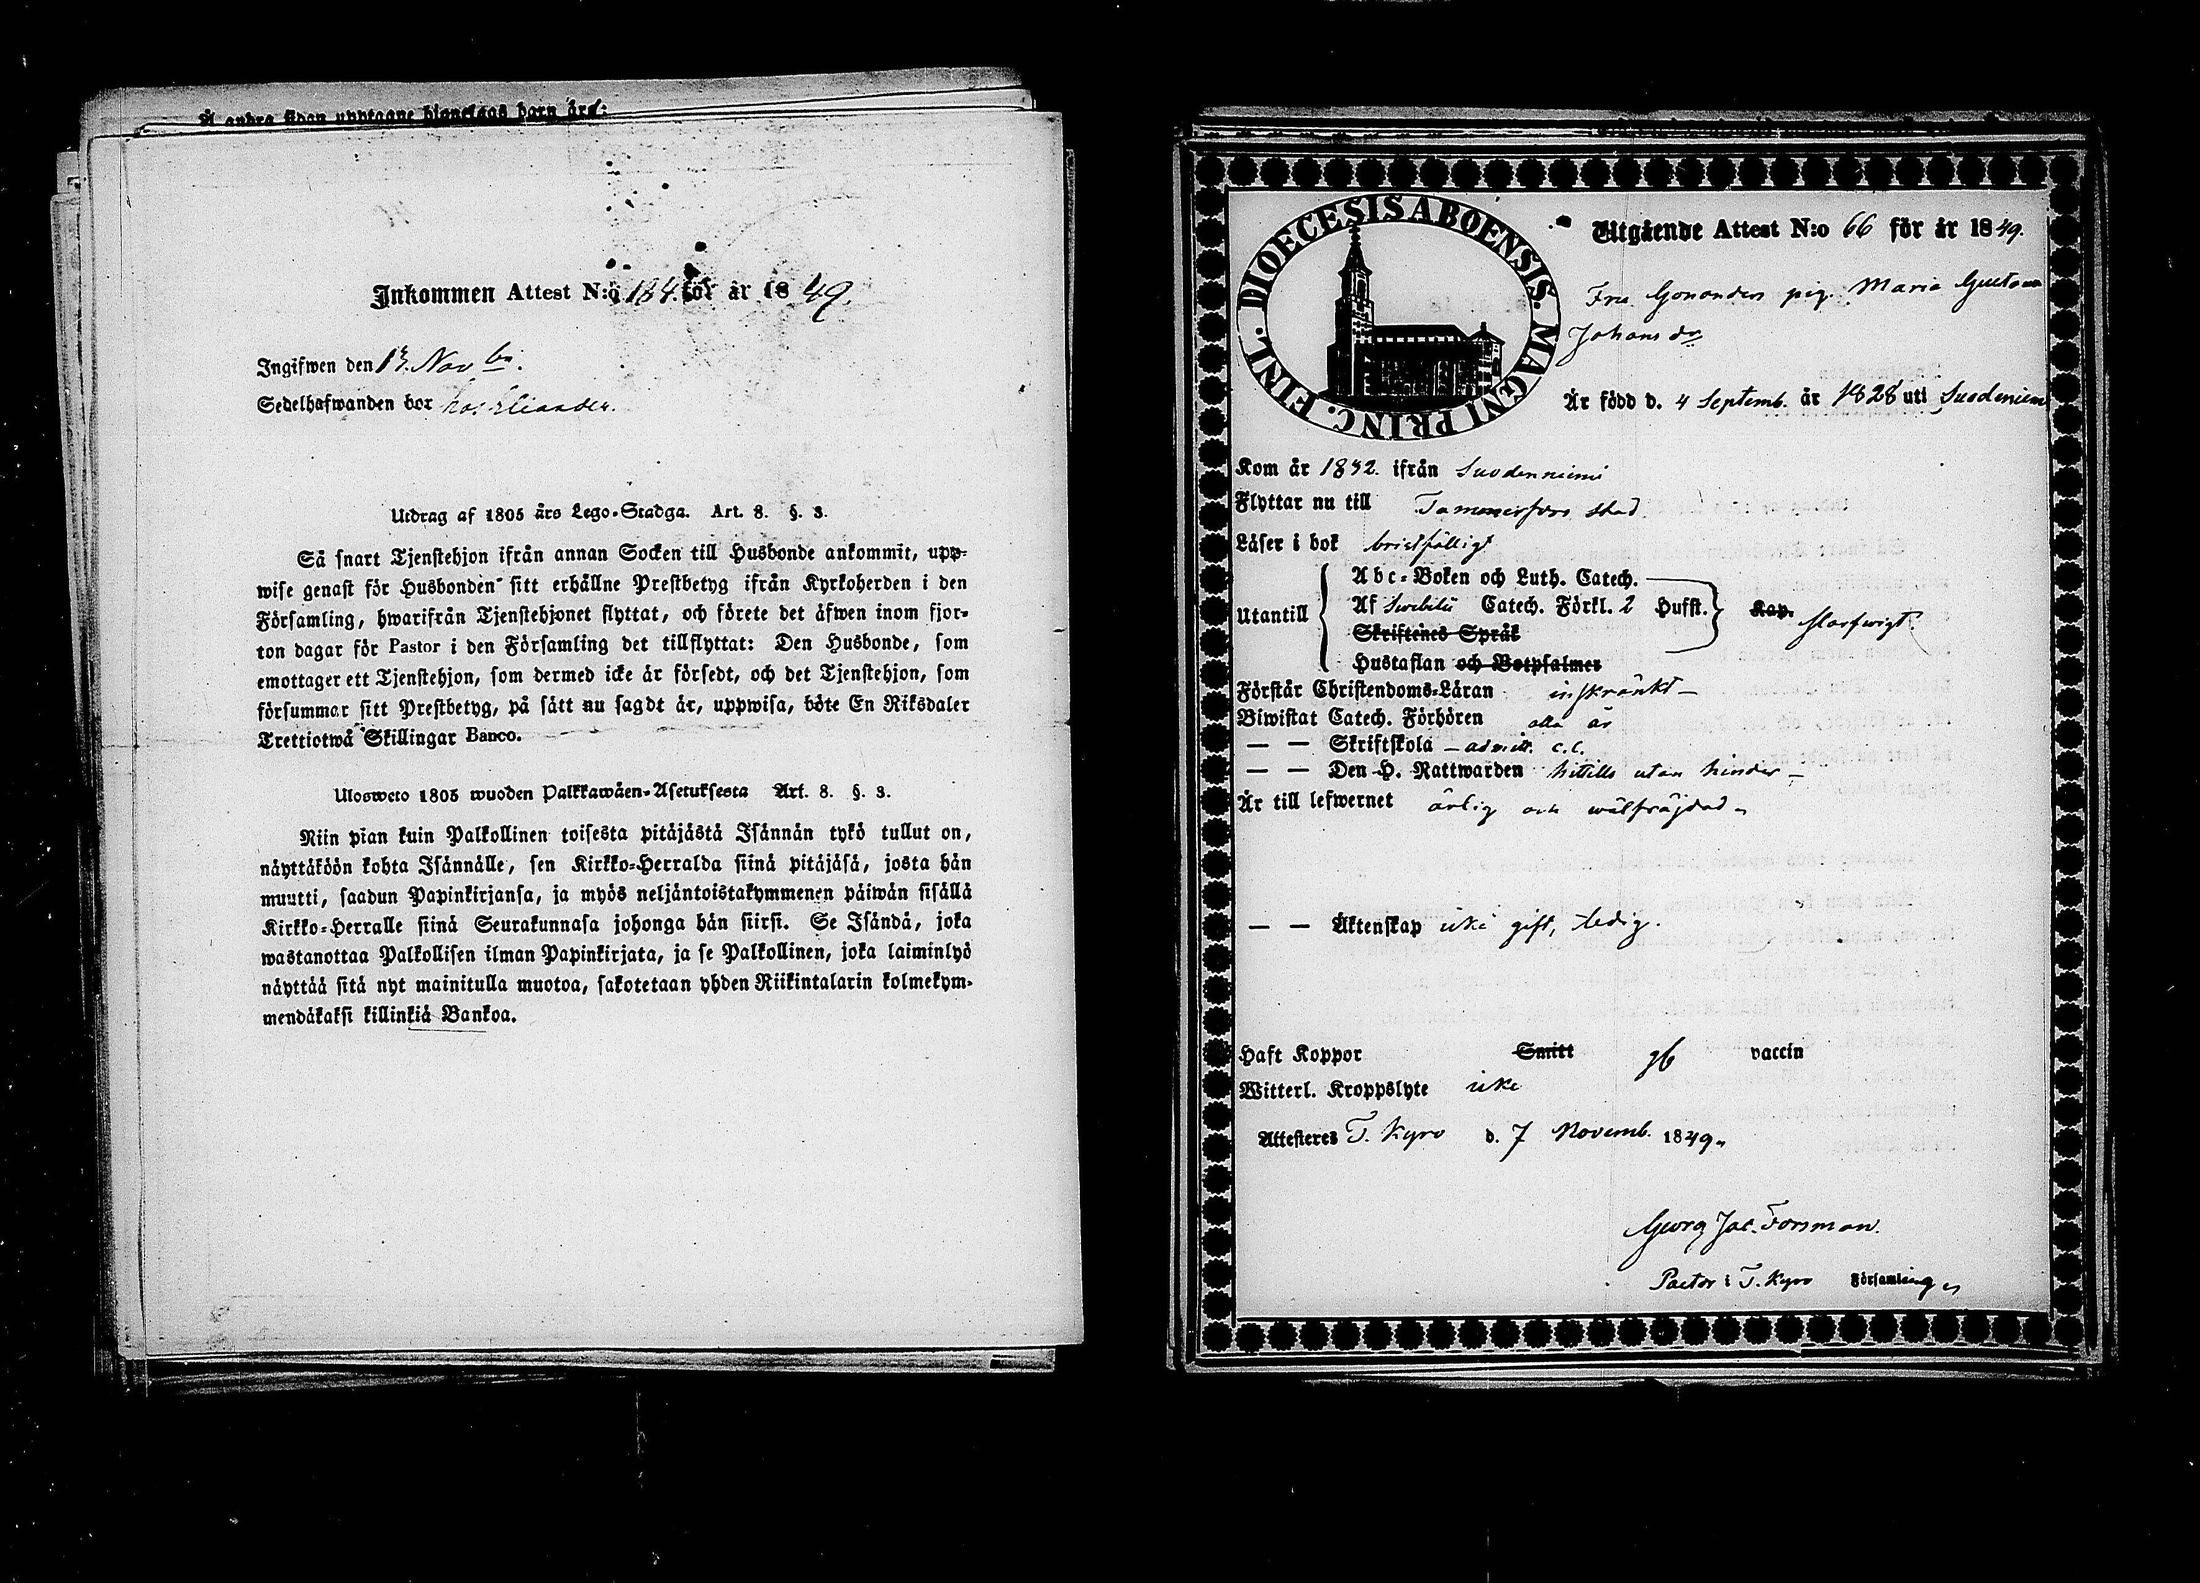 Å andra sidan upptagne hjonelags barn äro:
Inkommen Attest N:o 184. för år 1849.
Ingifwen den 13. Novbr.
Sedelhafwanden bor hos Eliander.
Utdrag af 1805 års Lego-Stadga. Art. 8. §. 3.
Så snart Tjenstehjon ifrån annan Socken till Husbonde ankommit, upp-
wise genast för Husbonden sitt erhållne Prestbetyg ifrån Kyrkoherden i den
Församling, hwarifrån Tjenstehjonet flyttat, och förete det äfwen inom fjor-
ton dagar för Pastor i den Församling det tillflyttat: Den Husbonde, som
emottager ett Tjenstehjon, som dermed icke är försedt, och det Tjenstehjon, som
försummar sitt Prestbetyg, på sätt nu sagdt är, uppwisa, böte En Riksdaler
Trettiotwå Skillingar Banco.
Ulosweto 1805 wuoden Palkkawäen-Asetuksesta Art. 8. §. 3.
Niin pian kuin Palkollinen toisesta pitäjästä Isännän tykö tullut on,
näyttäköön kohta Isännälle, sen Kirkko-Herralda siinä pitäjäsä, josta hän
muutti, saadun Papinkirjansa, ja myös neljäntoistakymmenen päiwän sisällä
Kirkko-Herralle siinä Seurakunnasa johonga hän siirsi. Se Isändä, joka
wastanottaa Palkollisen ilman Papinkirjata, ja se Palkollinen, joka laiminlyö
näyttää sitä nyt mainitulla muotoa, sakotetaan yhden Riikintalarin kolmekym-
mendäkaksi killinkiä Bankoa.
DIOECESIS ABOENSIS. MAGNI PRINC. FINL.
Utgående Attest N:o 66 för år 1849.
Fru Gonanders pig. Maria Gustava
Johansdr
Är född d. 4 Septemb. år 1828 uti Suodeniem
Kom år 1832. ifrån Suodenniemi
Flyttar nu till Tammerfors stad
Läser i bok bristfälligt
Abc-Boken och Luth. Catech.
Utantill Af Svebilii Catech. Förkl. 2 Hufst. Kap. slarfwigt.
Skriftenes Språk
Hustaflan och Botpsalmer
Förstår Christendoms-Läran inskränkt
Biwistat Catech. Förhören alla år
— — Skriftskola – admitt. c.c.
— — Den H. Nattwarden hittills utan hinder –
Är till lefwernet ärlig och wälfräjdad
— — Äktenskap icke gift, ledig.
Haft Koppor Smitt gb vaccin
Witterl. Kroppslyte icke
Attesteres T. Kyro d. 7 Novemb. 1849.
Georg Jac. Forsman.
Pastor i T. Kyro Församling